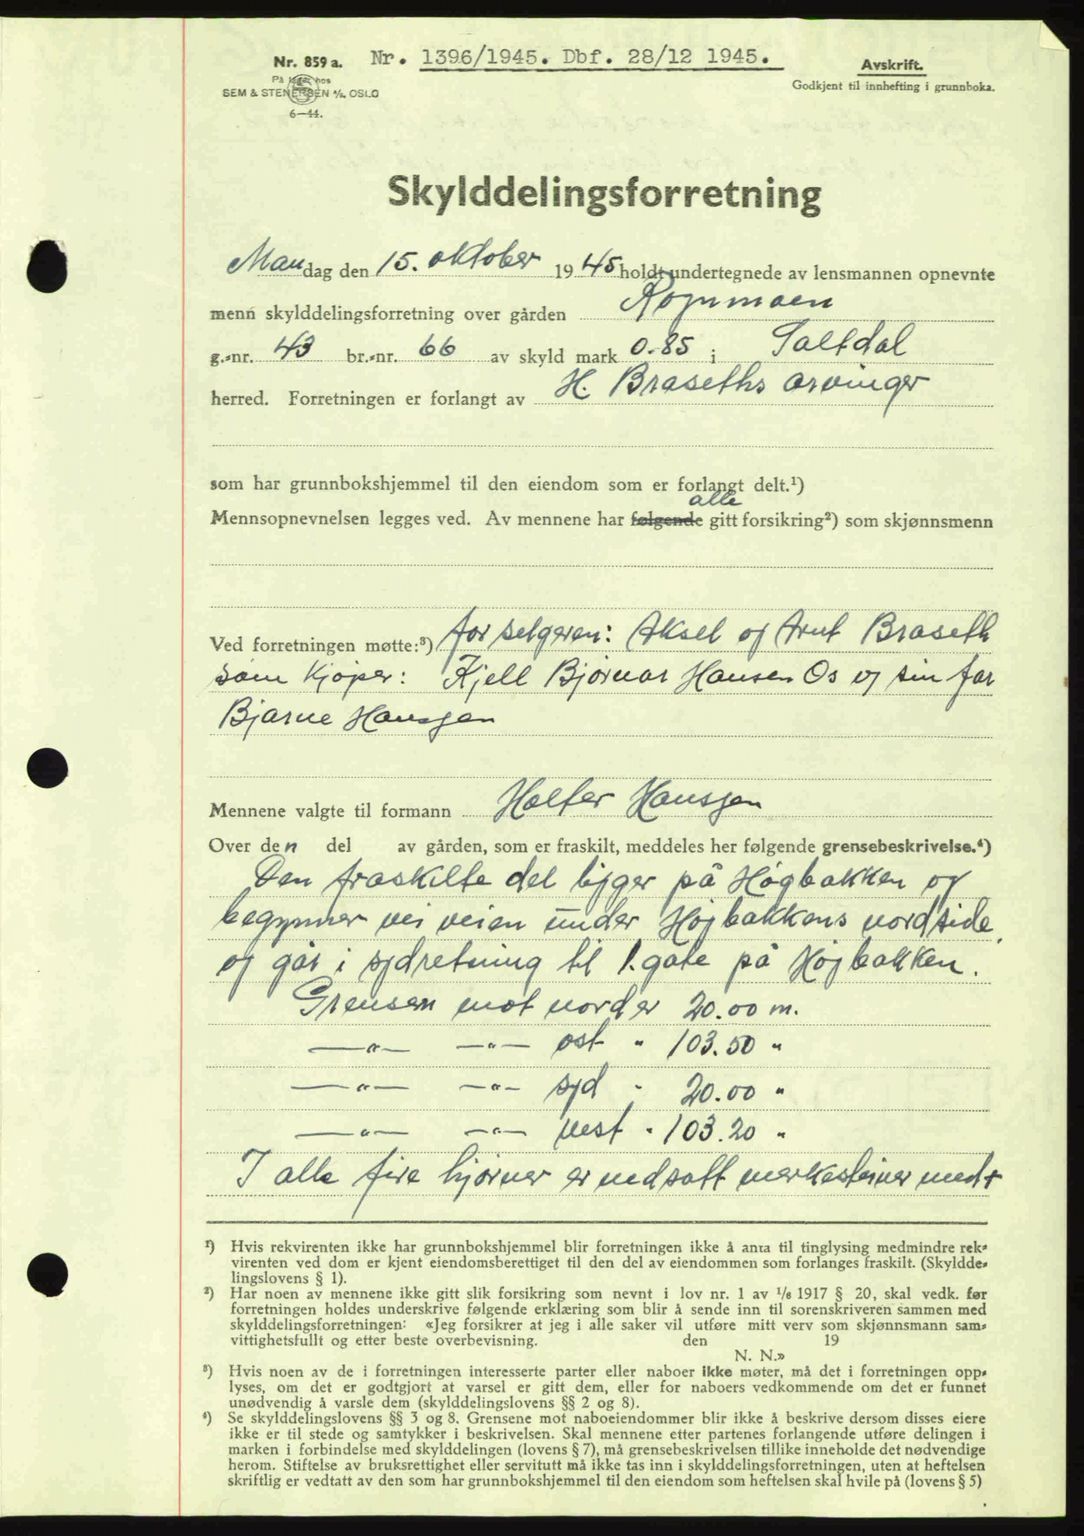 Nr. 859 a. Nr. 1396/1945. Dbf. 28/12 1945.
På lager hos
SEM & STENERSEN A/S. OSLO
6—44.
Avskrift.
Godkjent til innhefting i grunnboka.
Skylddelingsforretning
Mandag den 15. oktober 1945 holdt undertegnede av lensmannen opnevnte
menn skylddelingsforretning over gården Rognmoen
g.-nr. 43 br.-nr. 66 av skyld mark 0.85 i Saltdal
herred. Forretningen er forlangt av H. Braseths arvinger
som har grunnbokshjemmel til den eiendom som er forlangt delt.¹)
alle
Mennsopnevnelsen legges ved. Av mennene har følgende gitt forsikring²) som skjønnsmenn
Ved forretningen møtte:³) for selgeren: Aksel og Arnt Braseth
som kjøper: Kjell Bjørnar Hansen Os og sin far
Bjarne Hanssen
Mennene valgte til formann Halfer Hanssen
Over den del av gården, som er fraskilt, meddeles her følgende grensebeskrivelse.⁴)
Den fraskilte del ligger på Høgbakken og
begynner vei veien under Højbakkens nordside,
og går i sydretning til 1. gate på Højbakken.
Grensen mot nord er 20.00 m.
—"— —"— ost " 103.50 "
—"— —"— syd " 20.00 "
—"— —"— vest " 103.20 "
I alle fire hjørner er nedsatt merkesteiner med +
¹) Hvis rekvirenten ikke har grunnbokshjemmel blir forretningen ikke å anta til tinglysing medmindre rek-
virenten ved dom er kjent eiendomsberettiget til den del av eiendommen som forlanges fraskilt. (Skyldde-
lingslovens § 1).
²) Har noen av mennene ikke gitt slik forsikring som nevnt i lov nr. 1 av 1/6 1917 § 20, skal vedk. før
forretningen holdes underskrive følgende erklæring som blir å sende inn til sorenskriveren sammen med
skylddelingsforretningen: «Jeg forsikrer at jeg i alle saker vil utføre mitt verv som skjønnsmann sam-
vittighetsfullt og etter beste overbevisning. den 19
N. N.»
³) Hvis noen av de i forretningen interesserte parter eller naboer ikke møter, må det i forretningen opp-
lyses, om det er godtgjort at varsel er gitt dem, eller for naboers vedkommende om det er funnet
unødvendig å varsle dem (skylddelingslovens §§ 2 og 8).
⁴) Se skylddelingslovens §§ 3 og 8. Grensene mot naboeiendommer blir ikke å beskrive dersom disses eiere
ikke er til stede og samtykker i beskrivelsen. Skal mennene etter partenes forlangende utføre delingen i
marken i forbindelse med skylddelingen (lovens § 7), må grensebeskrivelsen tillike inneholde det nødvendige
herom. Stiftelse av bruksrettighet eller servitutt må ikke tas inn i skylddelingsforretningen, uten at heftelsen
skriftlig er vedtatt av den som har grunnbokshjemmel til den eiendom som heftelsen skal hvile på (lovens § 5)